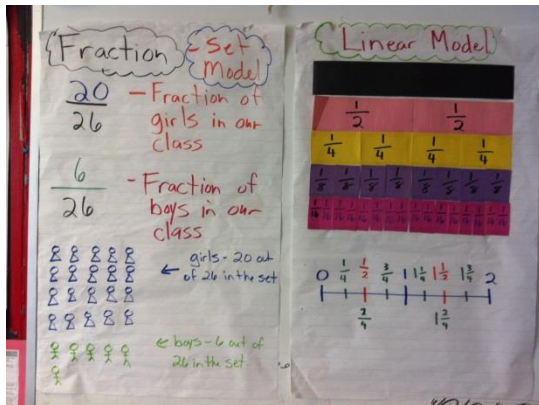 Fraction - Set
Model
20
26
- Fraction of
girls in our
class
6
26
- Fraction of
boys in our
class
girls - 20 out
of 26 in the set
boys - 6 out of
26 in the set
Linear Model
1/2 1/2
1/4 1/4 1/4 1/4
1/8 1/8 1/8 1/8 1/8 1/8 1/8 1/8
1/16 1/16 1/16 1/16 1/16 1/16 1/16 1/16 1/16 1/16 1/16 1/16 1/16 1/16 1/16 1/16
0 1/4 1/2 3/4 1 1 1/4 1 1/2 1 3/4 2
2/4 1 2/4